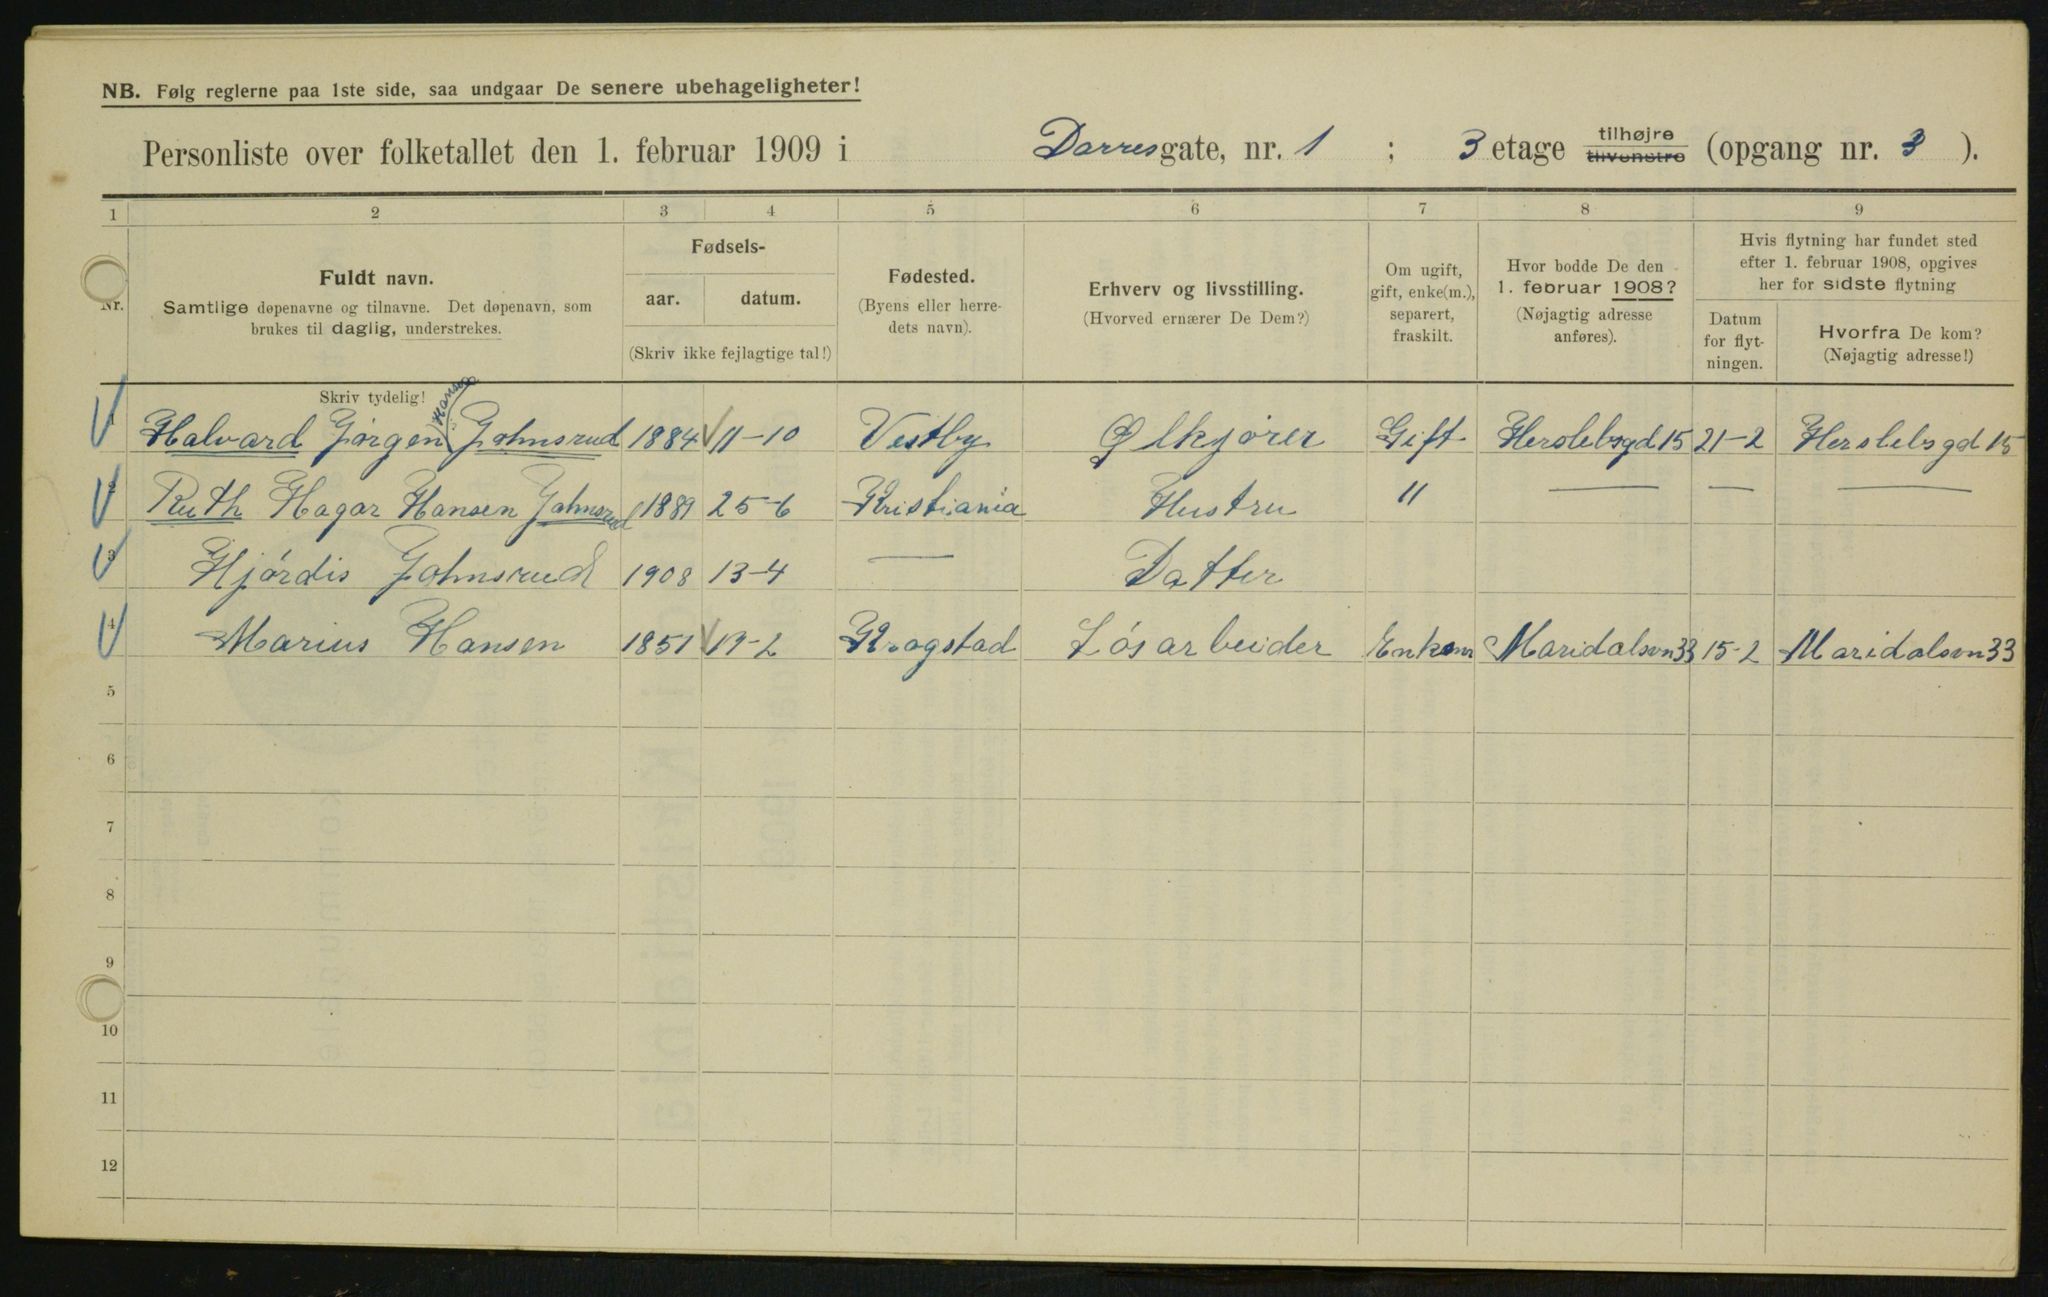 NB. Følg reglerne paa 1ste side, saa undgaar De senere ubehageligheter!
Personliste over folketallet den 1. februar 1909 i Darresgate, nr. 1 ; 3 etage tilhøjre tilvenstre (opgang nr. 3 ).
1 2 3 4 5 6 7 8 9
Nr.
Fuldt navn.
Samtlige døpenavne og tilnavne. Det døpenavn, som
brukes til daglig, understrekes.
Skriv tydelig!
Fødsels-
aar. datum.
(Skriv ikke fejlagtige tal!)
Fødested.
(Byens eller herre-
dets navn).
Erhverv og livsstilling.
(Hvorved ernærer De Dem?)
Om ugift,
gift, enke(m.),
separert,
fraskilt.
Hvor bodde De den
1. februar 1908?
(Nøjagtig adresse
anføres).
Hvis flytning har fundet sted
efter 1. februar 1908, opgives
her for sidste flytning
Datum
for flyt-
ningen.
Hvorfra De kom?
(Nøjagtig adresse!)
Hansen
1 Halvard Jørgen Johnsrud 1884 11-10 Vestby Ølkjører Gift Herslebsgd 15 21-2 Herslebsgd 15
2 Ruth Hagar Hansen Johnsrud 1889 25-6 Kristiania Hustru " — — —
3 Hjórdis Johnsrud 1908 13-4 — Datter
4 Marius Hansen 1851 19-2 Krogstad Lósarbeider Enkem Maridalsvn 33 15-2 Maridalsvn 33
5
6
7
8
9
10
11
12